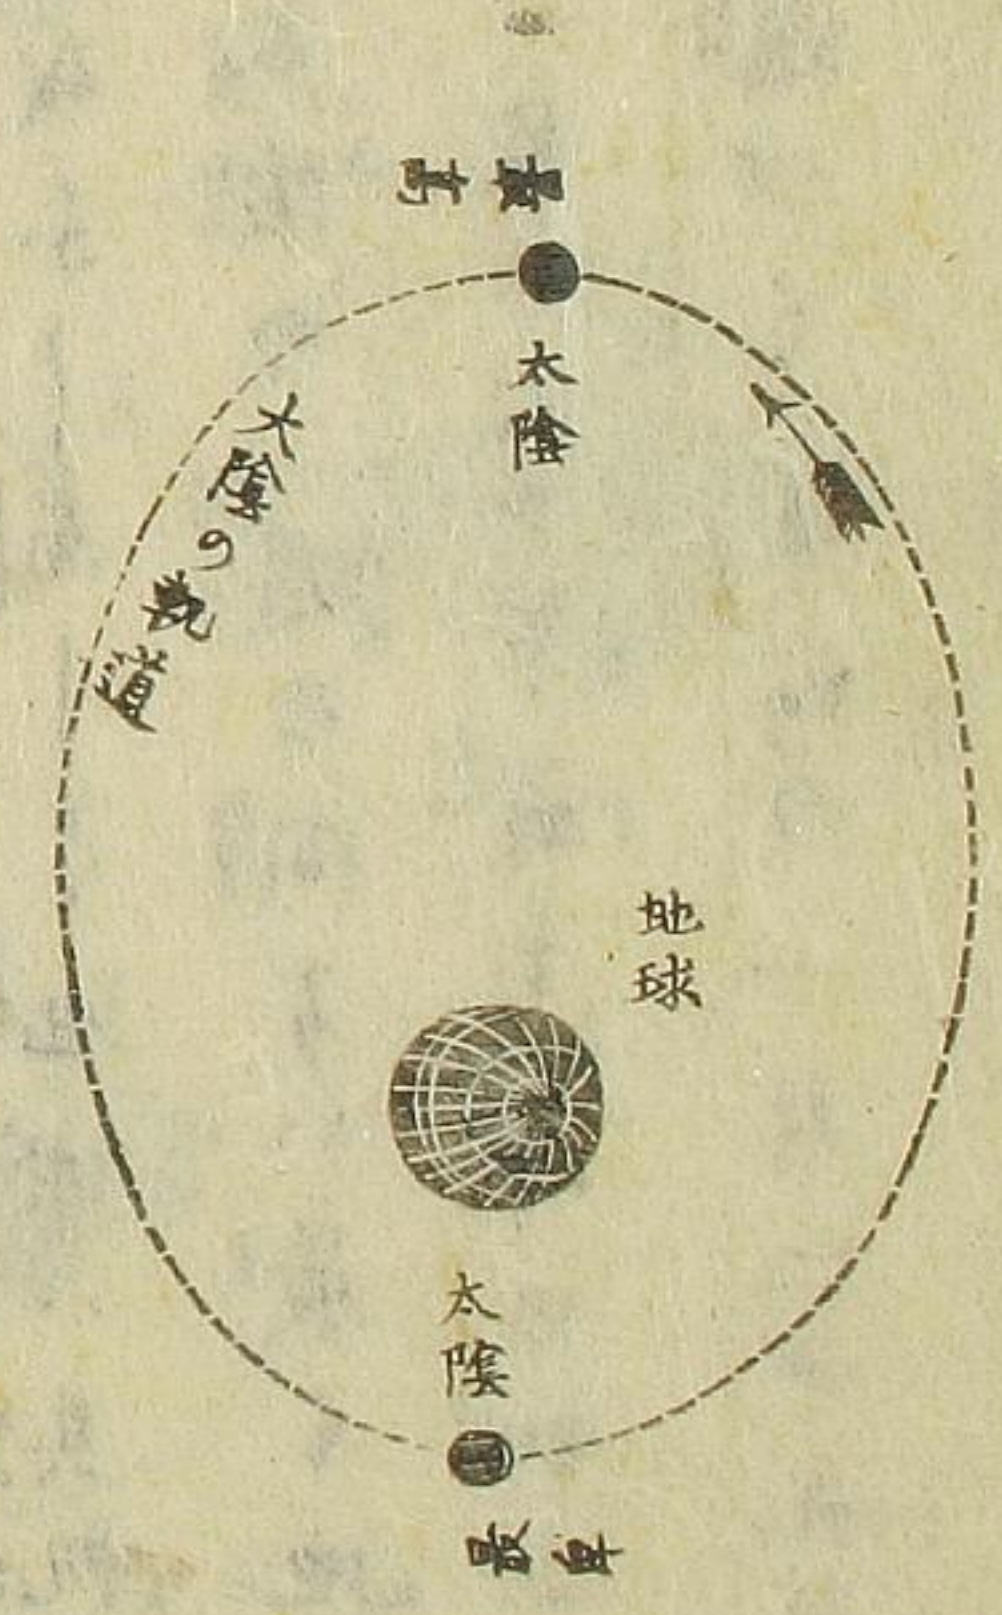 最高
太陰
大陰の軌道
地球
太陰
最卑